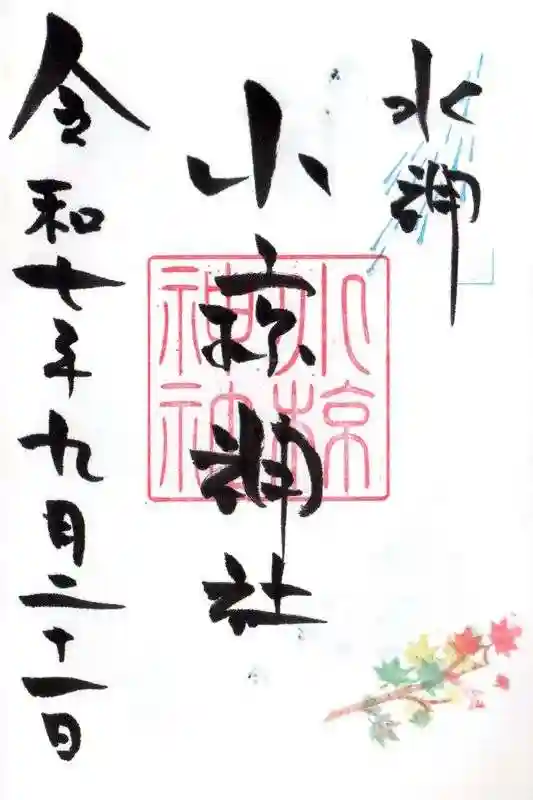 水神
小椋神社
令和七年九月二十一日